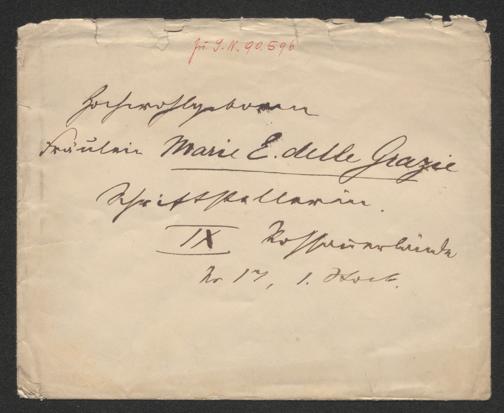 zu I.N. 90.596
Hochwohlgeboren
Fräulein Marie E. delle Grazie
Schriftstellerin.
IX Rossauerlände
No 17, 1. Stock.